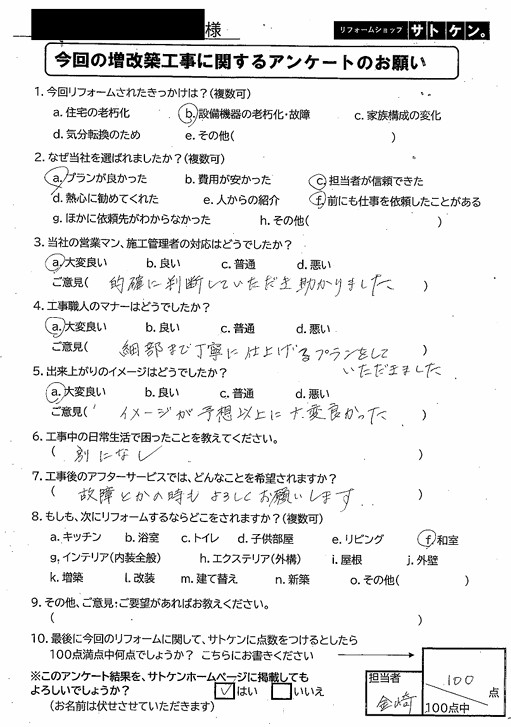 様
リフォームショップ サトケン。
今回の増改築工事に関するアンケートのお願い
1. 今回リフォームされたきっかけは?(複数可)
a. 住宅の老朽化 b. 設備機器の老朽化・故障 c. 家族構成の変化
d. 気分転換のため e. その他( )
2. なぜ当社を選ばれましたか?(複数可)
a. プランが良かった b. 費用が安かった c. 担当者が信頼できた
d. 熱心に勧めてくれた e. 人からの紹介 f. 前にも仕事を依頼したことがある
g. ほかに依頼先がわからなかった h. その他( )
3. 当社の営業マン、施工管理者の対応はどうでしたか?
a. 大変良い b. 良い c. 普通 d. 悪い
ご意見( 的確に判断していただき助かりました )
4. 工事職人のマナーはどうでしたか?
a. 大変良い b. 良い c. 普通 d. 悪い
ご意見( 細部まで丁寧に仕上げるプランをして )
いただきました
5. 出来上がりのイメージはどうでしたか?
a. 大変良い b. 良い c. 普通 d. 悪い
ご意見( イメージが予想以上に大変良かった )
6. 工事中の日常生活で困ったことを教えてください。
( 別になし )
7. 工事後のアフターサービスでは、どんなことを希望されますか?
( 故障とかの時もよろしくお願いします.. )
8. もしも、次にリフォームするならどこをされますか?(複数可)
a. キッチン b. 浴室 c. トイレ d. 子供部屋 e. リビング f. 和室
g. インテリア(内装全般) h. エクステリア(外構) i. 屋根 j. 外壁
k. 増築 l. 改装 m. 建て替え n. 新築 o. その他( )
9. その他、ご意見・ご要望があればお教えください。
( )
10. 最後に今回のリフォームに関して、サトケンに点数をつけるとしたら
100点満点中何点でしょうか? こちらにお書きください
担当者 金崎
100 点
100点中
※このアンケート結果を、サトケンホームページに掲載しても
よろしいでしょうか? ☑はい □いいえ
(お名前は伏せさせていただきます)